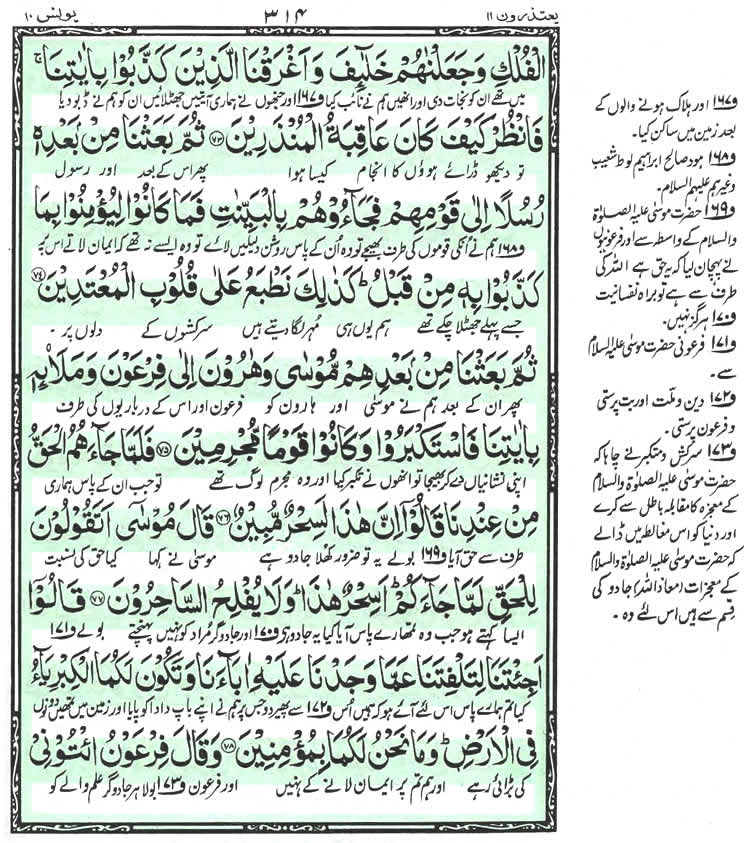 یعتذرون ۱۱
۳۱۴
یونس ۱۰
الْفُلْكِ وَجَعَلْنٰهُمْ خَلٰٓئِفَ وَاَغْرَقْنَا الَّذِيْنَ كَذَّبُوْا بِاٰيٰتِنَا ۚ
میں تھے ان کو نجات دی اور انھیں ہم نے نائب کیا و۱۶۷ اور جنھوں نے ہماری آیتیں جھٹلائیں ان کو ہم نے ڈبو دیا
فَانْظُرْ كَيْفَ كَانَ عَاقِبَةُ الْمُنْذَرِيْنَ ﴿۷۳﴾ ثُمَّ بَعَثْنَا مِنْۢ بَعْدِهٖ
تو دیکھو ڈرائے ہوؤں کا انجام کیسا ہوا پھر اس کے بعد اور رسول
رُسُلًا اِلٰى قَوْمِهِمْ فَجَآءُوْهُمْ بِالْبَيِّنٰتِ فَمَا كَانُوْا لِيُؤْمِنُوْا بِمَا
و۱۶۸ ہم نے انکی قوموں کی طرف بھیجے تو وہ اُن کے پاس روشن دلیلیں لائے تو وہ ایسے نہ تھے کہ ایمان لاتے اس پر
كَذَّبُوْا بِهٖ مِنْ قَبْلُ ؕ كَذٰلِكَ نَطْبَعُ عَلٰى قُلُوْبِ الْمُعْتَدِيْنَ ﴿۷۴﴾
جسے پہلے جھٹلا چکے تھے ہم یوں ہی مُہر لگا دیتے ہیں سرکشوں کے دلوں پر ۔
ثُمَّ بَعَثْنَا مِنْۢ بَعْدِهِمْ مُّوْسٰى وَهٰرُوْنَ اِلٰى فِرْعَوْنَ وَمَلَا۟ئِهٖ
پھر ان کے بعد ہم نے موسیٰ اور ہارون کو فرعون اور اس کے درباریوں کی طرف
بِاٰيٰتِنَا فَاسْتَكْبَرُوْا وَكَانُوْا قَوْمًا مُّجْرِمِيْنَ ﴿۷۵﴾ فَلَمَّا جَآءَهُمُ الْحَقُّ
اپنی نشانیاں دے کر بھیجا تو انھوں نے تکبر کیا اور وہ مجرم لوگ تھے تو جب ان کے پاس ہماری
مِنْ عِنْدِنَا قَالُوْٓا اِنَّ هٰذَا لَسِحْرٌ مُّبِيْنٌ ﴿۷۶﴾ قَالَ مُوْسٰٓى اَتَقُوْلُوْنَ
طرف سے حق آیا و۱۶۹ بولے یہ تو ضرور کھلا جادو ہے موسیٰ نے کہا کیا حق کی نسبت
لِلْحَقِّ لَمَّا جَآءَكُمْ ؕ اَسِحْرٌ هٰذَا ؕ وَلَا يُفْلِحُ السّٰحِرُوْنَ ﴿۷۷﴾ قَالُوْٓا
ایسا کہتے ہو جب وہ تمھارے پاس آیا کیا یہ جادو ہی و۱۷۰ اور جادوگر مُراد کو نہیں پہنچتے بولے و۱۷۱
اَجِئْتَنَا لِتَلْفِتَنَا عَمَّا وَجَدْنَا عَلَيْهِ اٰبَآءَنَا وَتَكُوْنَ لَكُمَا الْكِبْرِيَآءُ
کیا تم ہمارے پاس اس لئے آئے ہو کہ ہمیں اُس و۱۷۲ سے پھیر دو جس پر ہم نے اپنے باپ دادا کو پایا اور زمین میں تمھیں دونوں
فِى الْاَرْضِ ؕ وَمَا نَحْنُ لَكُمَا بِمُؤْمِنِيْنَ ﴿۷۸﴾ وَقَالَ فِرْعَوْنُ ائْتُوْنِىْ
کی بڑائی رہے اور ہم تم پر ایمان لانے کے نہیں اور فرعون و۱۷۳ بولا ہر جادوگر علم والے کو
و۱۶۷ اور ہلاک ہونے والوں کے
بعد زمین میں ساکن کیا۔
و۱۶۸ ہود صالح ابراہیم لوط شعیب
وغیرہم علیہم السلام۔
و۱۶۹ حضرت موسیٰ علیہ الصلوٰۃ
والسلام کے واسطہ سے اور فرعونیوں
نے پہچان لیا کہ یہ حق ہے اللہ کی
طرف سے ہے تو براہ نفسانیت
و۱۷۰ ہرگز نہیں۔
و۱۷۱ فرعونی حضرت موسیٰ علیہ السلام
سے۔
و۱۷۲ دین و ملت اور بت پرستی
و فرعون پرستی۔
و۱۷۳ سرکش و متکبر نے چاہا کہ
حضرت موسیٰ علیہ الصلوٰۃ والسلام
کے معجزہ کا مقابلہ باطل سے کرے
اور دنیا کو اس مغالطہ میں ڈالے
کہ حضرت موسیٰ علیہ الصلوٰۃ والسلام
کے معجزات (معاذ اللہ) جادو کی
قسم سے ہیں اس لئے وہ ۔